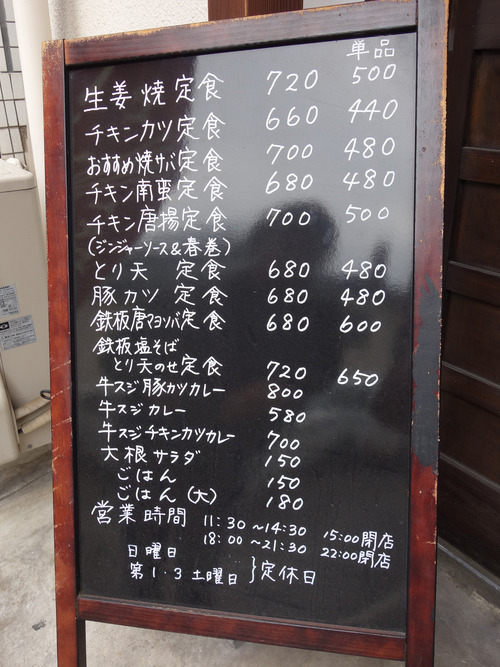 単品
生姜焼定食 720 500
チキンカツ定食 660 440
おすすめ焼サバ定食 700 480
チキン南蛮定食 680 480
チキン唐揚定食 700 500
(ジンジャーソース&春巻)
とり天 定食 680 480
豚カツ 定食 680 480
鉄板唐マヨソバ定食 680 600
鉄板塩そば
とり天のせ定食 720 650
牛スジ豚カツカレー 800
牛スジカレー 580
牛スジチキンカツカレー 700
大根サラダ 150
ごはん 150
ごはん(大) 180
営業時間 11:30~14:30 15:00閉店
18:00~21:30 22:00閉店
日曜日
第1・3土曜日 }定休日